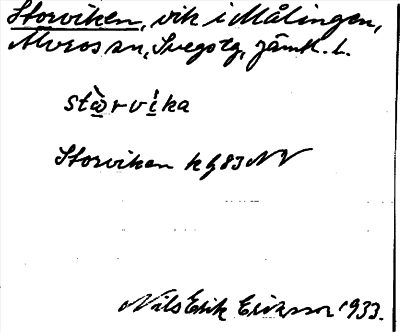 Storviken, vik i Målingen,
Älvros sn, Svegs tg, Jämtl. l.
stὼrvi̠ka
Storviken k G 83 NV
Nils Erik Eriksson 1933.